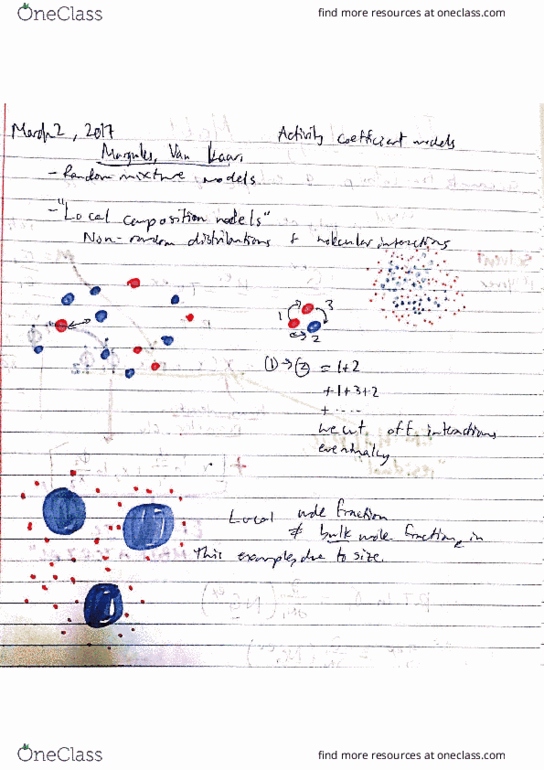 OneClass
find more resources at oneclass.com
March 2, 2017
Activity coefficient models
Margules, Van Laar,
- Random mixture models
- "Local composition models"
Non-random distributions + molecular interactions
1 3
2
① → ② = 1+2
+1+3+2
+ .....
we cut off interactions
eventually
Local mole fraction
≠ bulk mole fraction, in
this example, due to size.
OneClass
find more resources at oneclass.com